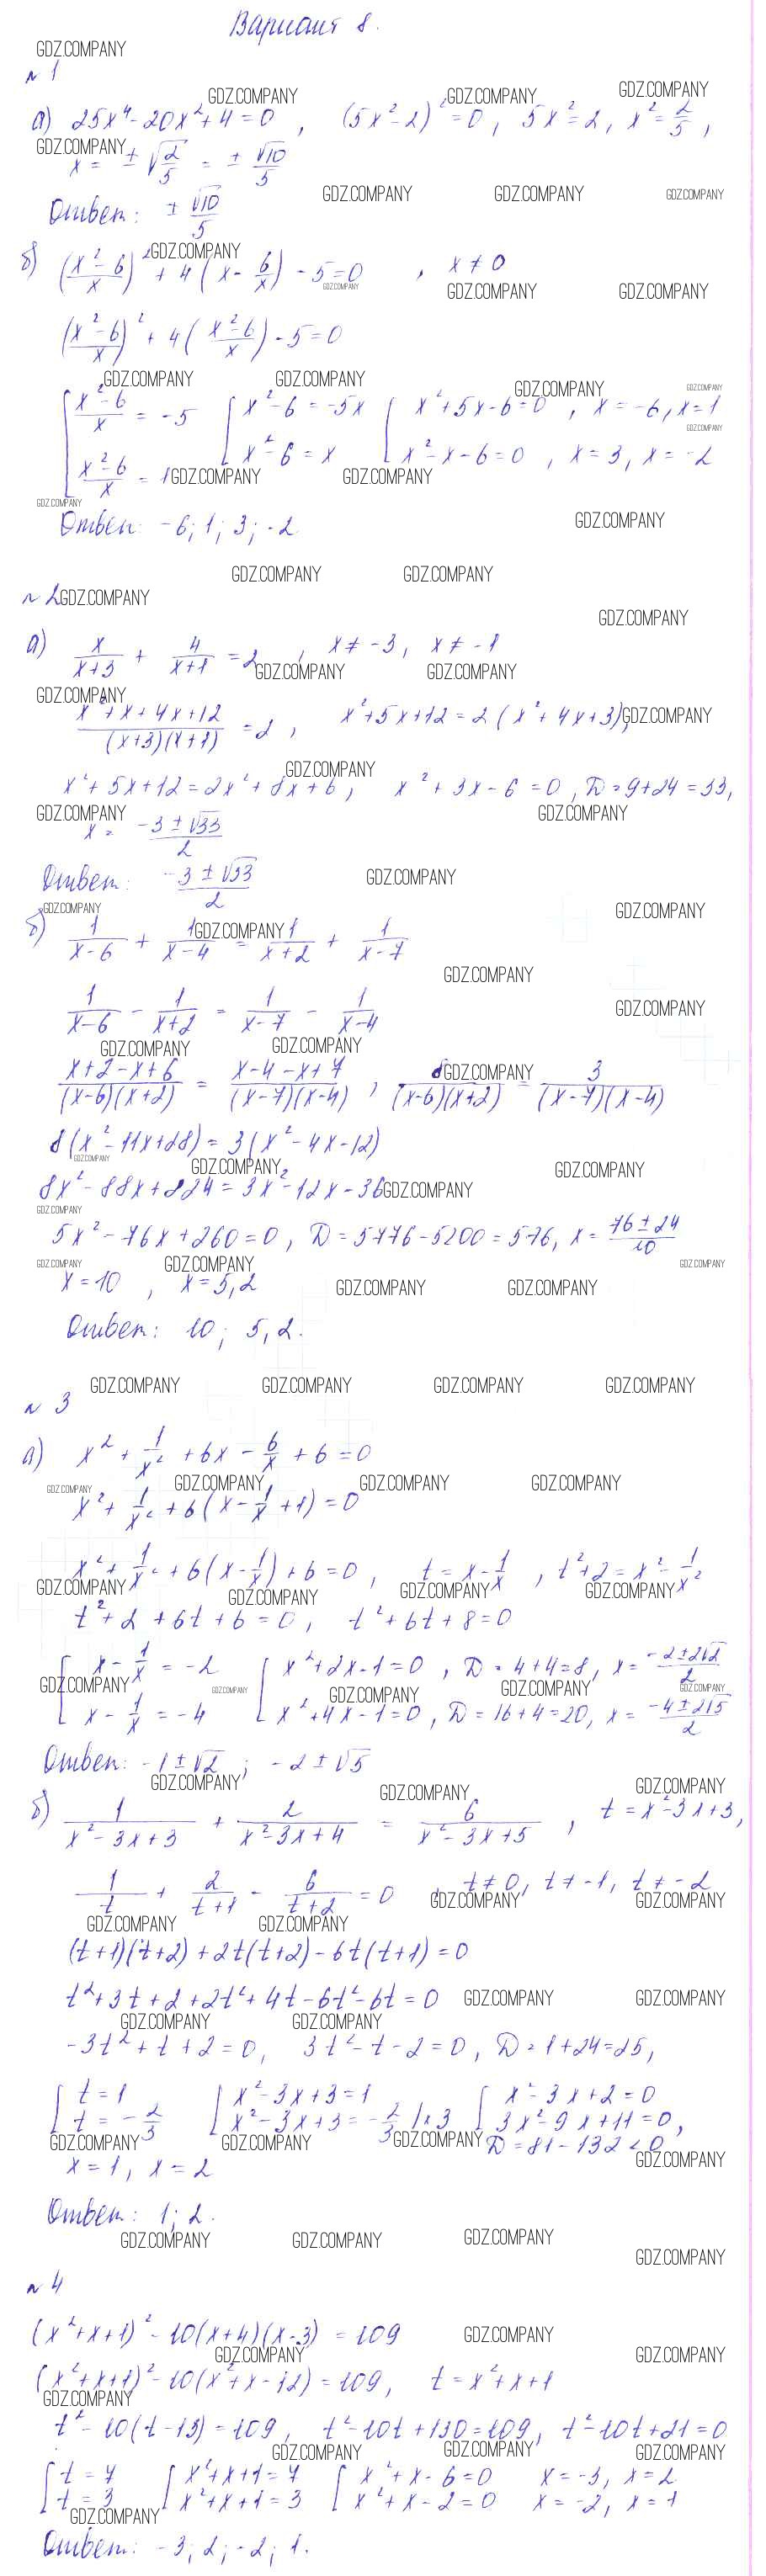 Вариант 8.
GDZ.COMPANY
№ 1
а) 25x⁴ - 20x² + 4 = 0 , (5x² - 2)² = 0, 5x² = 2, x² = 2/5 ,
x = ± √(2/5) = ± √10/5
Ответ: ± √10/5
б) ((x² - 6)/x)² + 4(x - 6/x) - 5 = 0 , x ≠ 0
((x² - 6)/x)² + 4((x² - 6)/x) - 5 = 0
[ (x² - 6)/x = -5 [ x² - 6 = -5x [ x² + 5x - 6 = 0 , x = -6, x = 1
(x² - 6)/x = 1 x² - 6 = x x² - x - 6 = 0 , x = 3, x = -2
Ответ: -6; 1; 3; -2
№ 2
а) x/(x+3) + 4/(x+1) = 2 , x ≠ -3, x ≠ -1
(x² + x + 4x + 12)/((x+3)(x+1)) = 2 , x² + 5x + 12 = 2(x² + 4x + 3),
x² + 5x + 12 = 2x² + 8x + 6, x² + 3x - 6 = 0, D = 9 + 24 = 33,
x = (-3 ± √33)/2
Ответ: (-3 ± √33)/2
б) 1/(x-6) + 1/(x-4) = 1/(x+2) + 1/(x-7)
1/(x-6) - 1/(x+2) = 1/(x-7) - 1/(x-4)
(x+2-x+6)/((x-6)(x+2)) = (x-4-x+7)/((x-7)(x-4)) , 8/((x-6)(x+2)) = 3/((x-7)(x-4))
8(x² - 11x + 28) = 3(x² - 4x - 12)
8x² - 88x + 224 = 3x² - 12x - 36
5x² - 76x + 260 = 0, D = 5776 - 5200 = 576, x = (76 ± 24)/10
x = 10 , x = 5,2
Ответ: 10; 5,2.
№ 3
а) x² + 1/x² + 6x - 6/x + 6 = 0
x² + 1/x² + 6(x - 1/x + 1) = 0
x² + 1/x² + 6(x - 1/x) + 6 = 0, t = x - 1/x , t² + 2 = x² - 1/x²
t² + 2 + 6t + 6 = 0, t² + 6t + 8 = 0
[ x - 1/x = -2 [ x² + 2x - 1 = 0 , D = 4 + 4 = 8, x = (-2 ± 2√2)/2
x - 1/x = -4 x² + 4x - 1 = 0, D = 16 + 4 = 20, x = (-4 ± 2√5)/2
Ответ: -1 ± √2 ; -2 ± √5
б) 1/(x² - 3x + 3) + 2/(x² - 3x + 4) = 6/(x² - 3x + 5) , t = x² - 3x + 3,
1/t + 2/(t+1) - 6/(t+2) = 0 , t ≠ 0, t ≠ -1, t ≠ -2
(t+1)(t+2) + 2t(t+2) - 6t(t+1) = 0
t² + 3t + 2 + 2t² + 4t - 6t² - 6t = 0
-3t² + t + 2 = 0, 3t² - t - 2 = 0, D = 1 + 24 = 25,
[ t = 1 [ x² - 3x + 3 = 1 [ x² - 3x + 2 = 0
t = -2/3 x² - 3x + 3 = -2/3 |×3 3x² - 9x + 11 = 0,
D = 81 - 132 < 0
x = 1, x = 2
Ответ: 1; 2.
№ 4
(x² + x + 1)² - 10(x+4)(x-3) = 109
(x² + x + 1)² - 10(x² + x - 12) = 109, t = x² + x + 1
t² - 10(t - 13) = 109, t² - 10t + 130 = 109, t² - 10t + 21 = 0
[ t = 7 [ x² + x + 1 = 7 [ x² + x - 6 = 0 x = -3, x = 2
t = 3 x² + x + 1 = 3 x² + x - 2 = 0 x = -2, x = 1
Ответ: -3; 2; -2; 1.